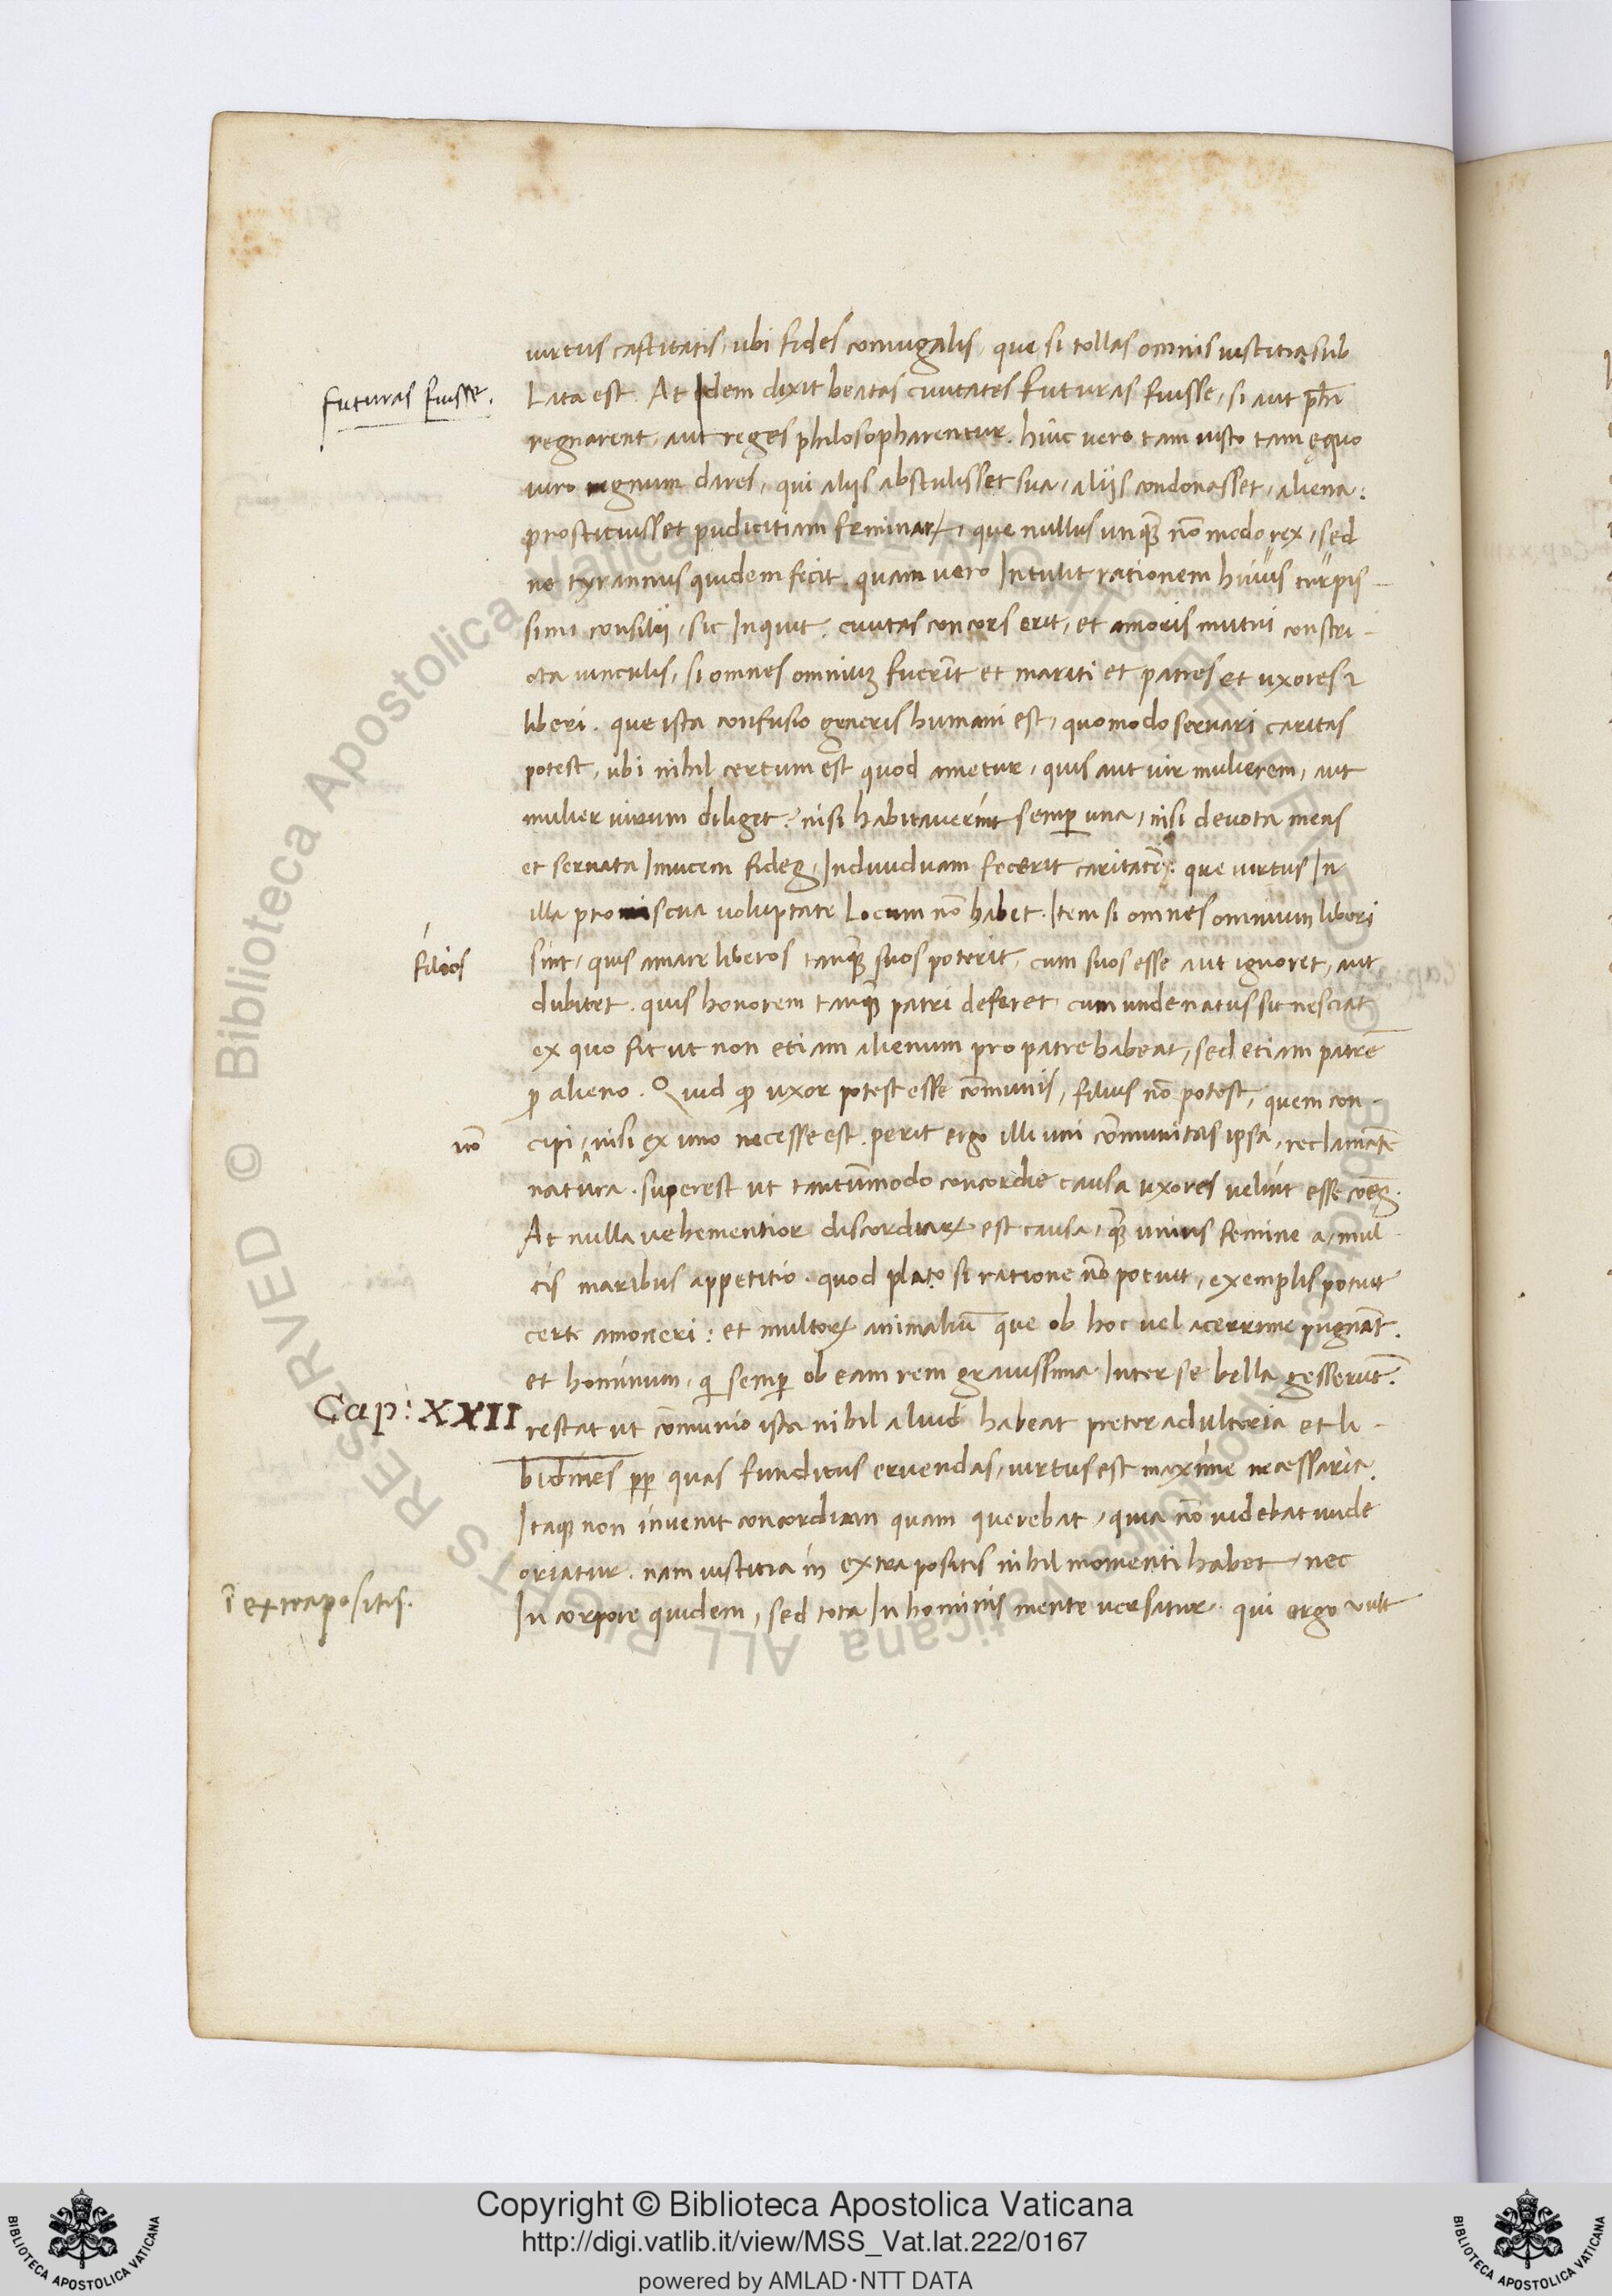 uirtus castitatis, ubi fides coniugalis, que si tollas omnis iustitia sub
futuras fuisse.
Lata est. At Idem dixit beatas ciuitates futuras fuisse, si aut ph̄i
regnarent, aut reges philosopharentur. huic uero tam iusto tam ęquo
uiro regnum dares, qui alijs abstulisset sua, alijs condonasset, aliena:
prostituisset pudicitiam feminaꝝ, que nullus unqꝫ nō modo rex, sed
ne tyrannus quidem fecit. quam uero Intulit rationem huius turpis-
simi consilij, sic Inquit. ciuitas concors erit, et amoris mutui constri-
cta uinculis, si omnes omniuꝫ fuerīt et mariti et patres et uxores ⁊
liberi. que ista confusio generis humani est, quomodo seruari caritas
potest, ubi nihil certum est quod ametur, quis aut uir mulierem, aut
mulier uirum diliget, nisi habitauerint semꝑ una, nisi deuota mens
et seruata Inuicem fideꝫ, Indiuiduam fecerit caritatē: que uirtus In
illa promiscua uoluptate Locum nō habet. Item si omnes omnium liberi
filios
sint, quis amare liberos tanqꝫ suos poterit, cum suos esse aut ignoret, aut
dubitet. quis honorem tanqꝫ patri deferet, cum unde natus sit nesciat
ex quo fit ut non etiam alienum pro patre habeat, sed etiam patrē
ꝓ alieno. Quid ꝙ uxor potest esse cōmunis, filius nō potest, quem con-
nō
cipi, nisi ex uno necesse est. perit ergo illi uni cōmunitas ipsa, reclamāte
natura. superest ut tantūmodo concordie causa uxores uelīt esse cōeꝫ.
At nulla uehementior discordiaꝝ est causa, qꝫ unius femine a mul-
tis maribus appetitio. quod plato si ratione nō potuit, exemplis potuit
certe amoneri: et multoꝝ animaliū que ob hoc uel acerrime pugnāt.
et hominum, qi semꝑ ob eam rem grauissima Inter se bella gesserūt.
Cap: XXII
restat ut cōmunio ista nihil aliud habeat preter adulteria et li-
bidines ꝓꝑ quas funditus eruendas, uirtus est maxime necessaria.
Itaqꝫ non inuenit concordiam quam querebat, quia nō uidebat unde
oriatur. nam iustitia in extra positis nihil momenti habet, nec
ī extrapositis.
In corpore quidem, sed tota In hominis mente uersatur. qui ergo uult
Copyright © Biblioteca Apostolica Vaticana
http://digi.vatlib.it/view/MSS_Vat.lat.222/0167
powered by AMLAD·NTT DATA
BIBLIOTECA APOSTOLICA VATICANA
BIBLIOTECA APOSTOLICA VATICANA